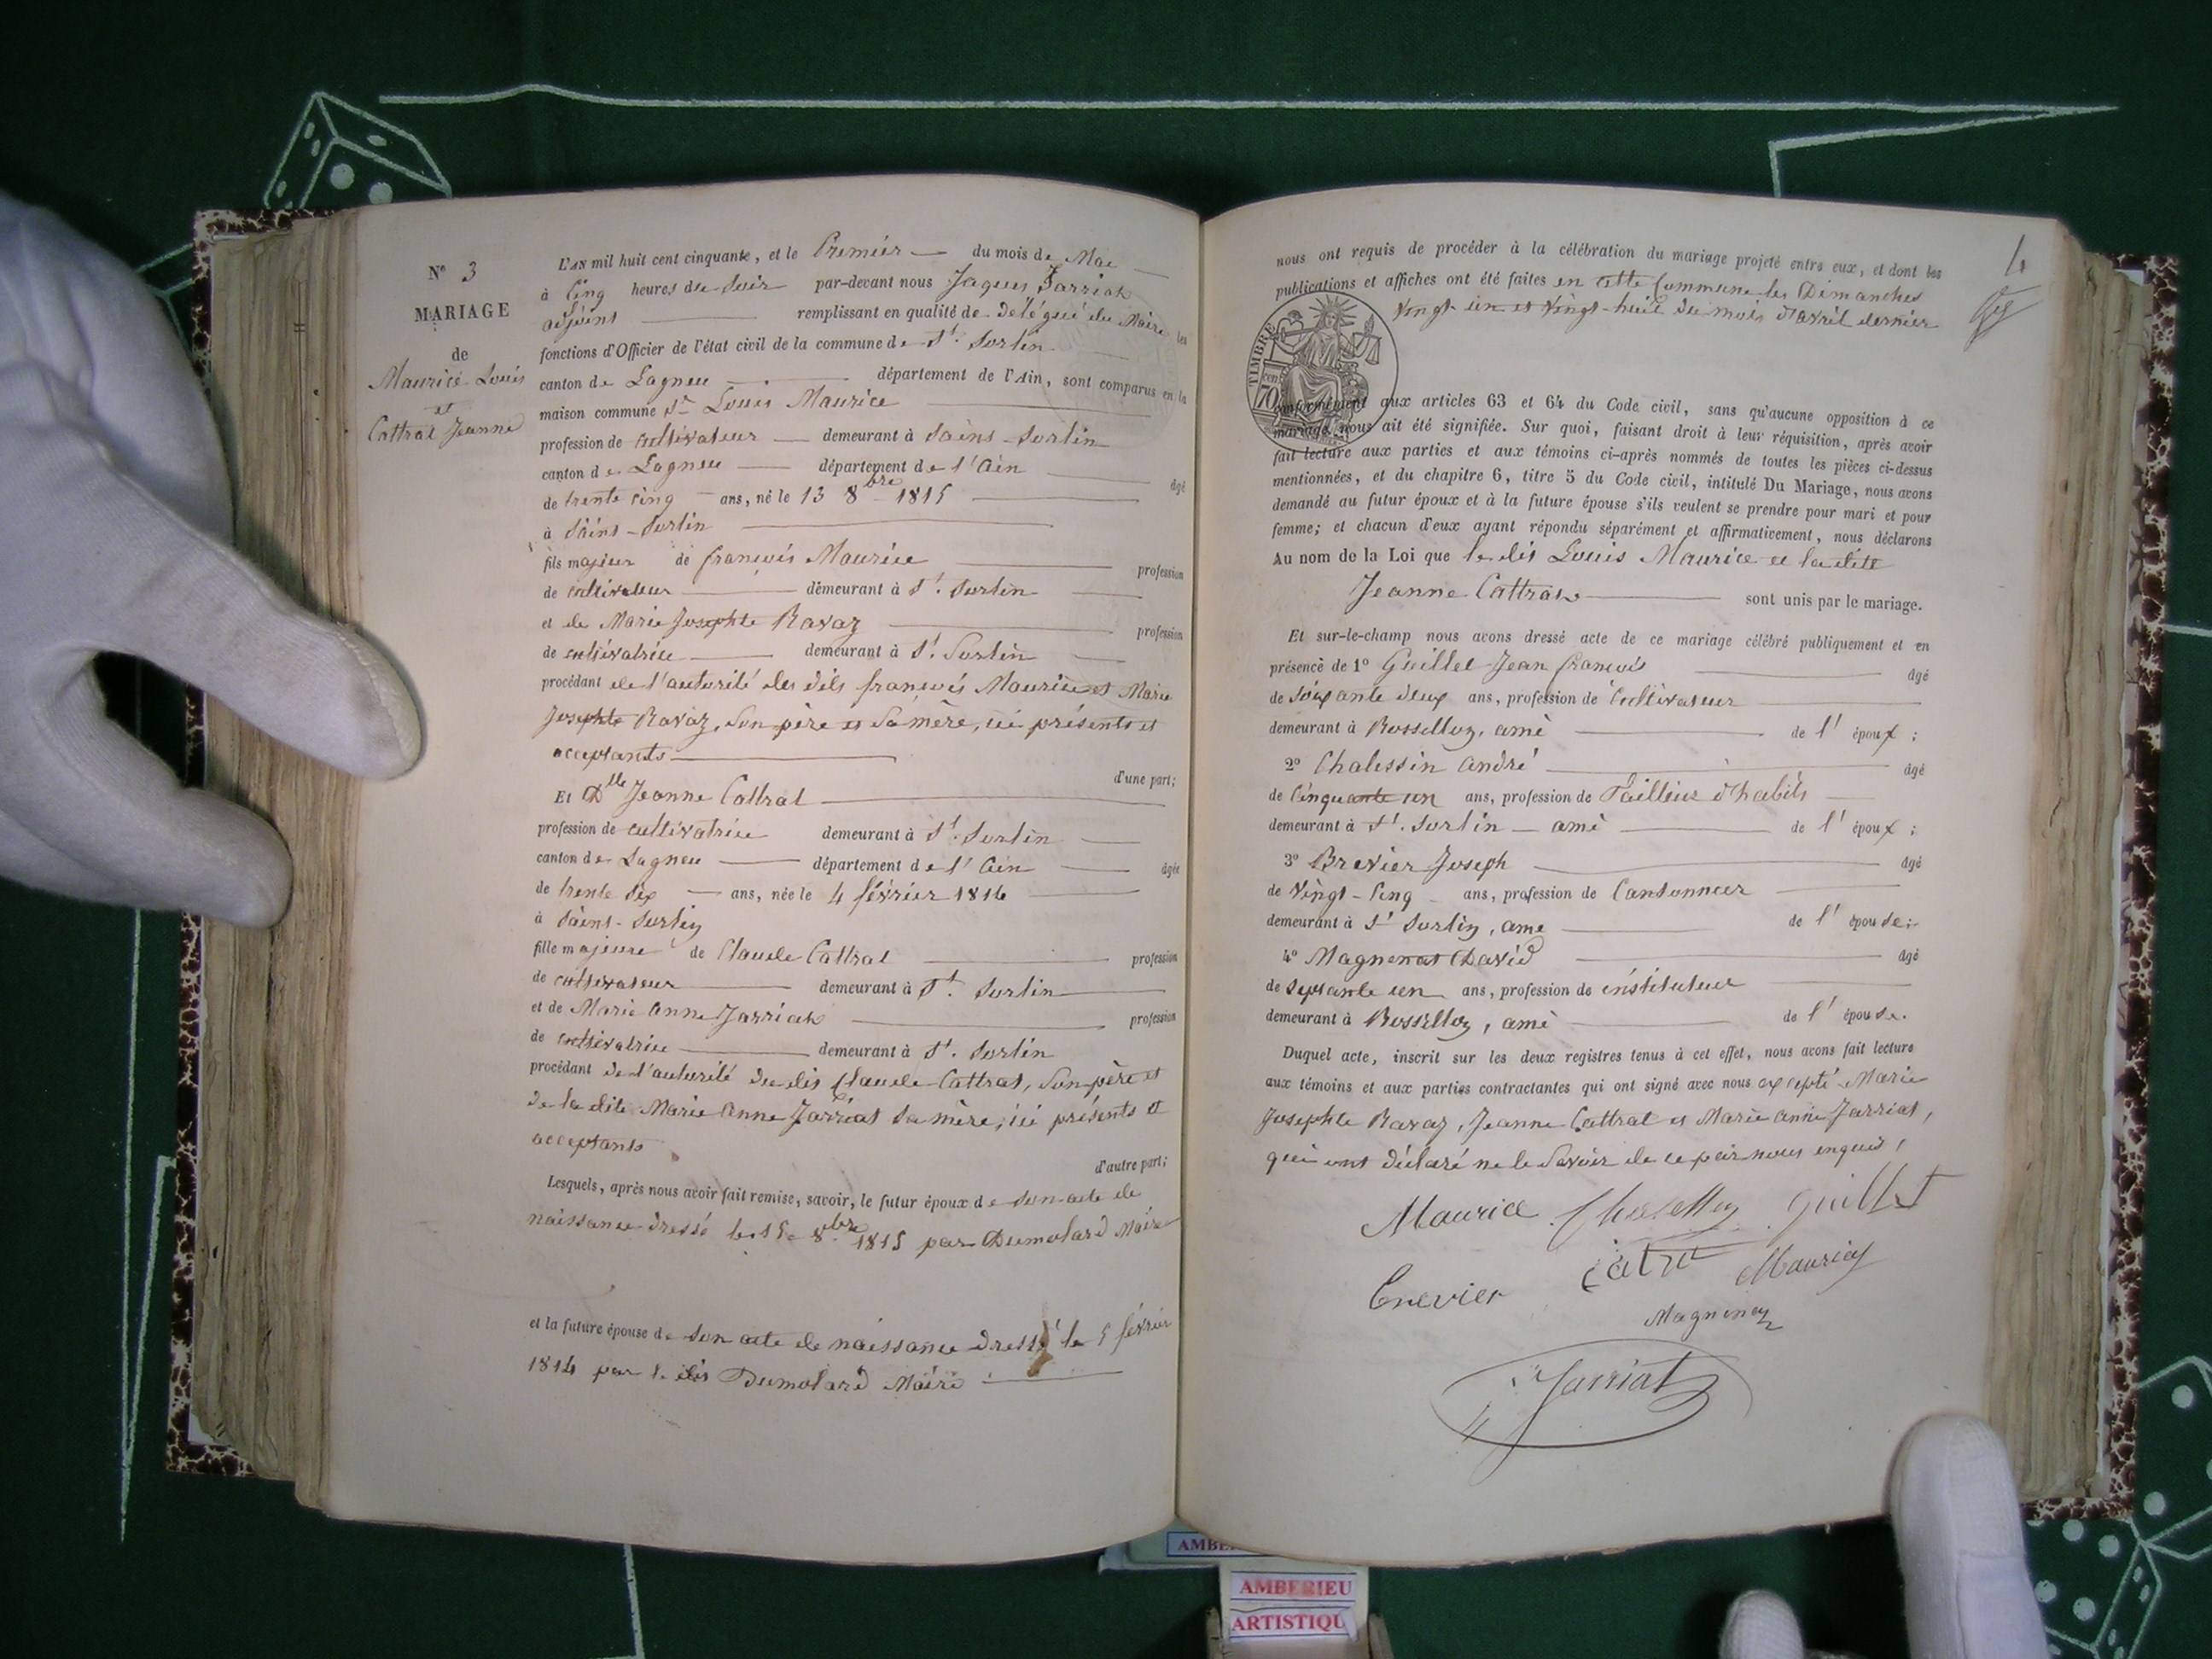 N° 3
MARIAGE
de
Maurice Louis
et
Cottrat Jeanne
L'AN mil huit cent cinquante, et le Premier du mois de Mai
à Cinq heures du Soir par-devant nous Jaques Jarriat
adjoint remplissant en qualité de Délégué du Maire les
fonctions d'Officier de l'état civil de la commune de St. Sorlin
canton de Lagneu département de l'Ain, sont comparus en la
maison commune Sr Louis Maurice
profession de cultivateur demeurant à Saint-Sorlin
canton de Lagneu département de l'Ain âgé
de trente cinq ans, né le 13 8bre 1815
à Saint-Sorlin
fils majeur de françois Maurice profession
de cultivateur demeurant à St. Sorlin
et de Marie Josephte Ravaz profession
de cultivatrice demeurant à St. Sorlin
procédant de l'autorité des dits françois Maurice et Marie
Josephte Ravaz, Son père et Sa mère, ici présents et
acceptants
d'une part;
Et Dlle Jeanne Cottrat
profession de cultivatrice demeurant à St. Sorlin
canton de Lagneu département de l'Ain âgée
de trente six ans, née le 4 février 1814
à Saint-Sorlin
fille majeure de Claude Cottrat profession
de cultivateur demeurant à St. Sorlin
et de Marie Anne Jarriat profession
de cultivatrice demeurant à St. Sorlin
procédant de l'autorité du dit Claude Cottrat, Son père et
de la dite Marie Anne Jarriat Sa mère, ici présents et
acceptants
d'autre part;
Lesquels, après nous avoir fait remise, savoir, le futur époux de Son acte de
naissance dressé le 15 8bre 1815 par Dumolard Maire
et la future épouse de Son acte de naissance dressé le 5 février
1814 par le dit Dumolard Maire
4
nous ont requis de procéder à la célébration du mariage projeté entre eux, et dont les
publications et affiches ont été faites en cette Commune les Dimanches
Vingt-un et Vingt-huit du mois d'avril dernier
TIMBRE
70
conformément aux articles 63 et 64 du Code civil, sans qu'aucune opposition à ce
mariage nous ait été signifiée. Sur quoi, faisant droit à leur réquisition, après avoir
fait lecture aux parties et aux témoins ci-après nommés de toutes les pièces ci-dessus
mentionnées, et du chapitre 6, titre 5 du Code civil, intitulé Du Mariage, nous avons
demandé au futur époux et à la future épouse s'ils veulent se prendre pour mari et pour
femme; et chacun d'eux ayant répondu séparément et affirmativement, nous déclarons
Au nom de la Loi que le dit Louis Maurice et la dite
Jeanne Cottrat sont unis par le mariage.
Et sur-le-champ nous avons dressé acte de ce mariage célébré publiquement et en
présence de 1° Guillet Jean françois âgé
de Soixante deux ans, profession de Cultivateur
demeurant à Bosselloz, ami de l'époux;
2° Chalessin André âgé
de Cinquante un ans, profession de Tailleur d'habits
demeurant à St. Sorlin ami de l'époux;
3° Brevier Joseph âgé
de Vingt-Cinq ans, profession de Cantonnier
demeurant à St Sorlin, ami de l'épouse;
4° Magnenat David âgé
de Septante un ans, profession de instituteur
demeurant à Bosselloz, ami de l'épouse.
Duquel acte, inscrit sur les deux registres tenus à cet effet, nous avons fait lecture
aux témoins et aux parties contractantes qui ont signé avec nous excepté Marie
Josephte Ravaz, Jeanne Cottrat et Marie Anne Jarriat,
qui ont déclaré ne le Savoir de ce par nous enquis!
Maurice Guillet
Maurice
Jarriat
AMBERIEU
ARTISTIQU